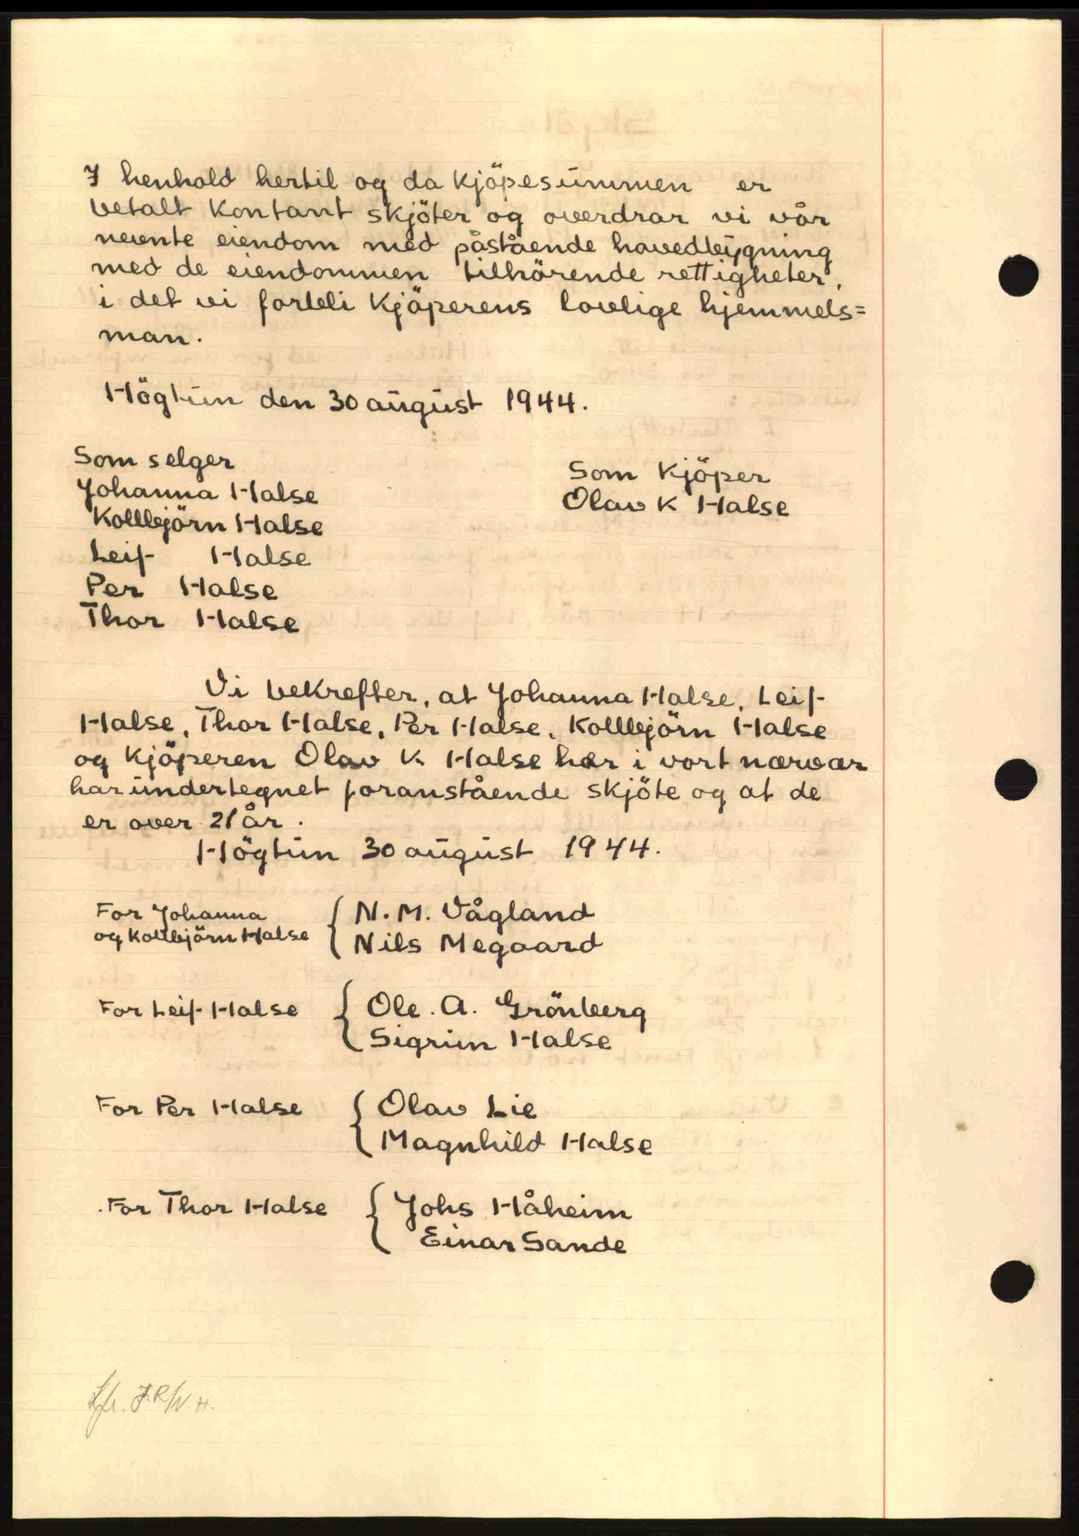 I henhold hertil og da kjöpesummen er
betalt kontant skjöter og overdrar vi vår
nevnte eiendom med påstående havedbygning
med de eiendommen tilhörende rettigheter,
i det vi forbli kjöperens lovlige hjemmels=
man.
Högtun den 30 august 1944.
Som selger
Johanna Halse
Kollbjörn Halse
Leif Halse
Per Halse
Thor Halse
Som kjöper
Olav K Halse
Vi bekrefter, at Johanna Halse, Leif
Halse, Thor Halse, Per Halse, Kollbjörn Halse
og kjöperen Olav K Halse har i vort nærvær
har undertegnet foranstående skjöte og at de
er over 21 år.
Högtun 30 august 1944.
For Johanna
og Kollbjörn Halse
{ N. M. Vågland
Nils Megaard
For Leif Halse { Ole. A. Grönberg
Sigrun Halse
For Per Halse { Olav Lie
Magnhild Halse
For Thor Halse { Johs Håheim
Einar Sande